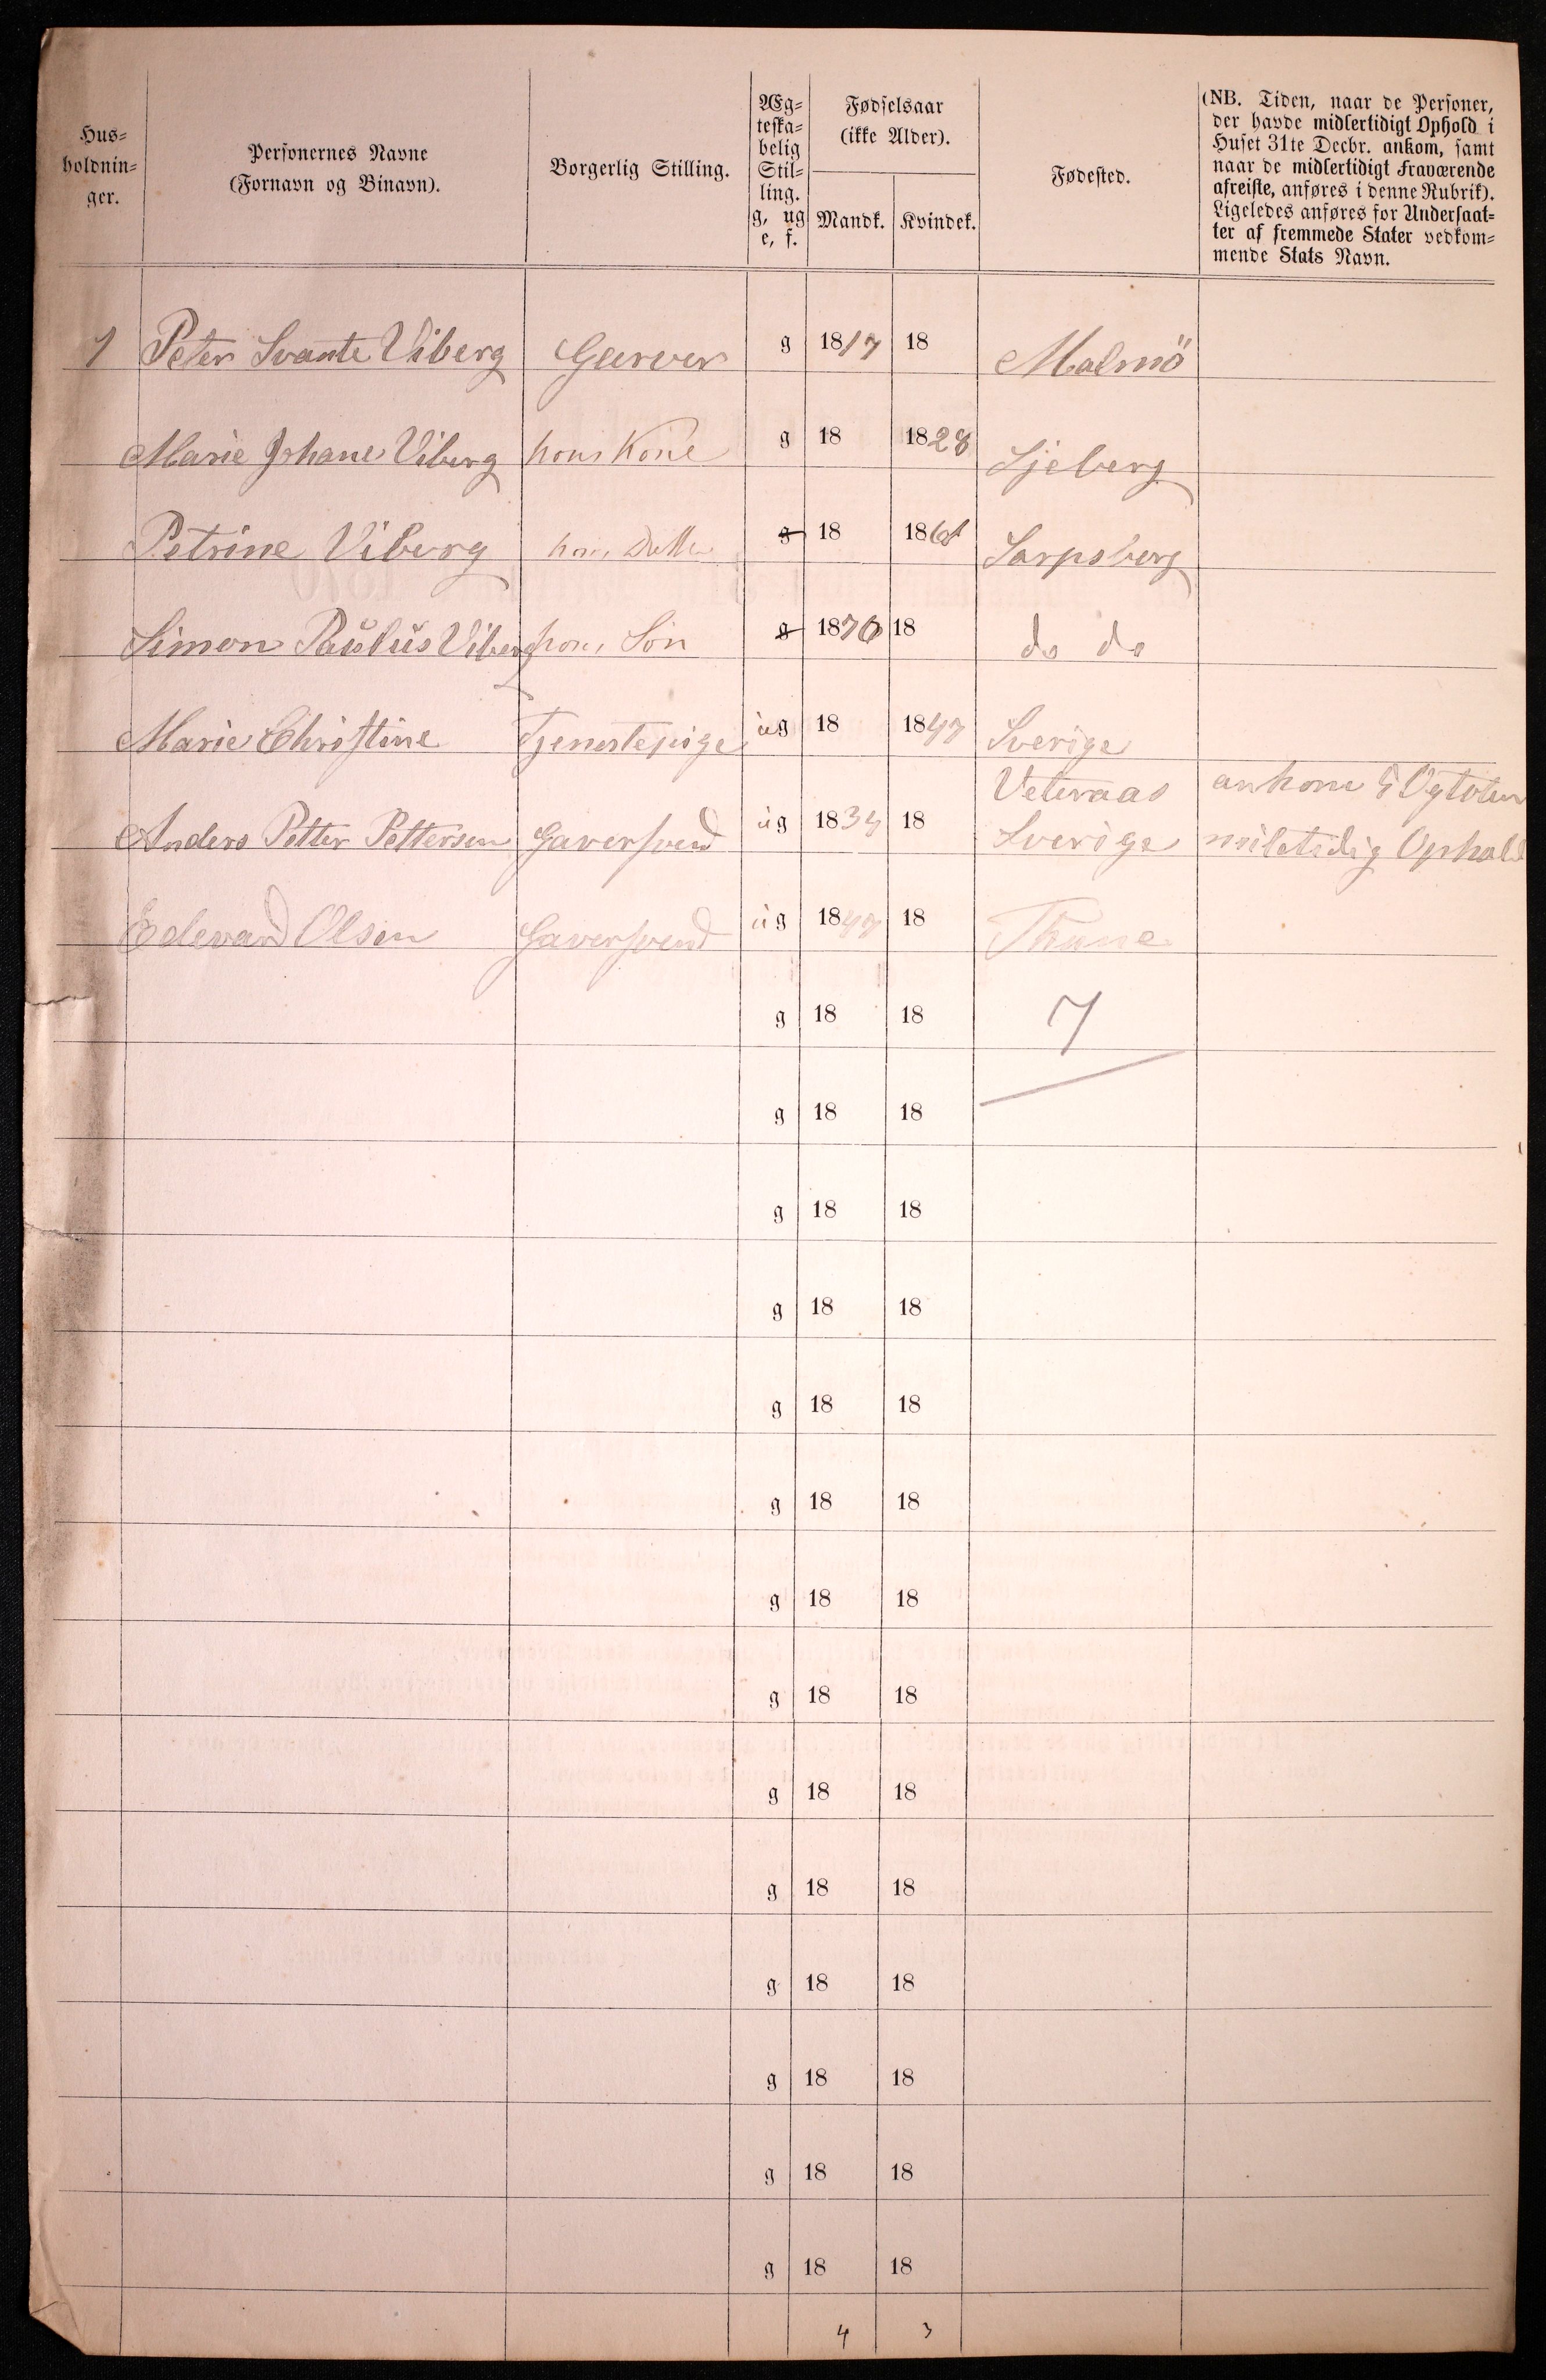 Hus-
holdnin-
ger.
Personernes Navne
(Fornavn og Binavn).
Borgerlig Stilling.
Æg-
teska-
belig
Stil-
ling.
g, ug
e, f.
Fødselsaar
(ikke Alder).
Mandk. Kvindek.
Fødested.
(NB. Tiden, naar de Personer,
der havde midlertidigt Ophold i
Huset 31te Decbr. ankom, samt
naar de midlertidigt Fraværende
afreiste, anføres i denne Rubrik).
Ligeledes anføres for Undersaat-
ter af fremmede Stater vedkom-
mende Stats Navn.
1 Peter Svante Viberg Garver g 1817 18 Malmö
Marie Johane Viberg hans Kone g 18 1828 Sjeberg
Petrine Viberg hans Datter g 18 Sarpsborg
Simon Paulus Viberg hans Sön g 1870 18 do do
Marie Christine Tjenestepige ug 18 1847 Sverige
Veteraas ankom
Anders Petter Pettersen Gaversvend ug 1834 18 Sverige Ophold
Edevard Olsen Gaversvend ug 1847 18 Thune
g 18 18 7
g 18 18
g 18 18
g 18 18
g 18 18
g 18 18
g 18 18
g 18 18
g 18 18
g 18 18
g 18 18
g 18 18
g 18 18
g 18 18
4 3